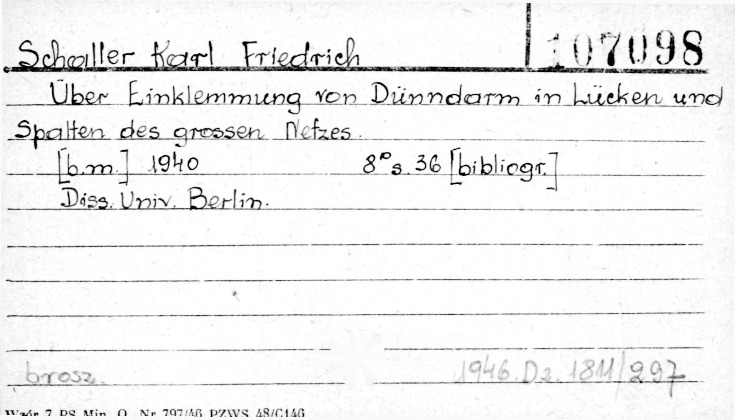 Schaller Karl Friedrich 107098
Über Einklemmung von Dünndarm in Lücken und
Spalten des grossen Netzes.
[b.m.] 1940 8° s. 36 [bibliogr.]
Diss. Univ. Berlin.
brosz. 1946.Dz. 1811/297
Wzór 7 PS Min. O. Nr 797/46 PZWS 48/C146